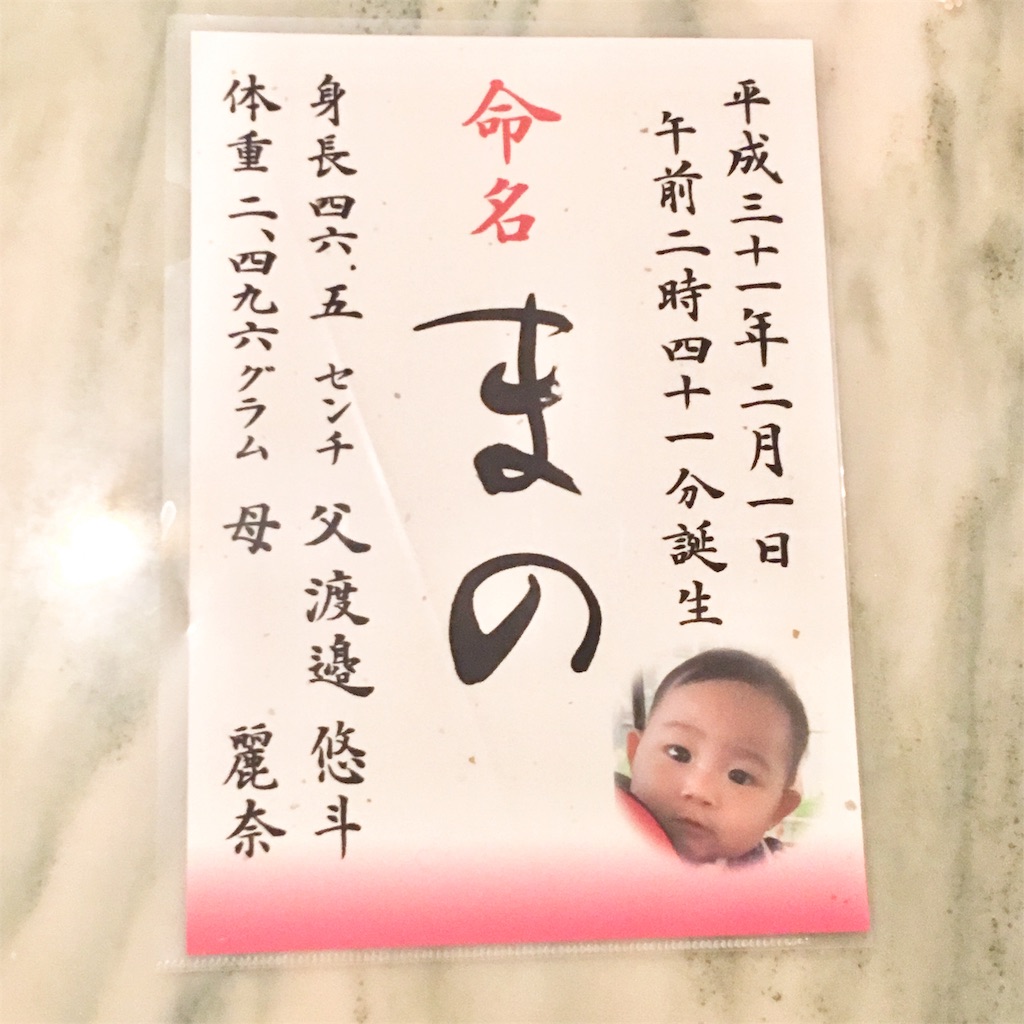 平成三十一年二月一日
午前二時四十一分誕生
命名 まの
身長四六．五 センチ 父 渡邉 悠斗
体重二、四九六グラム 母 麗奈